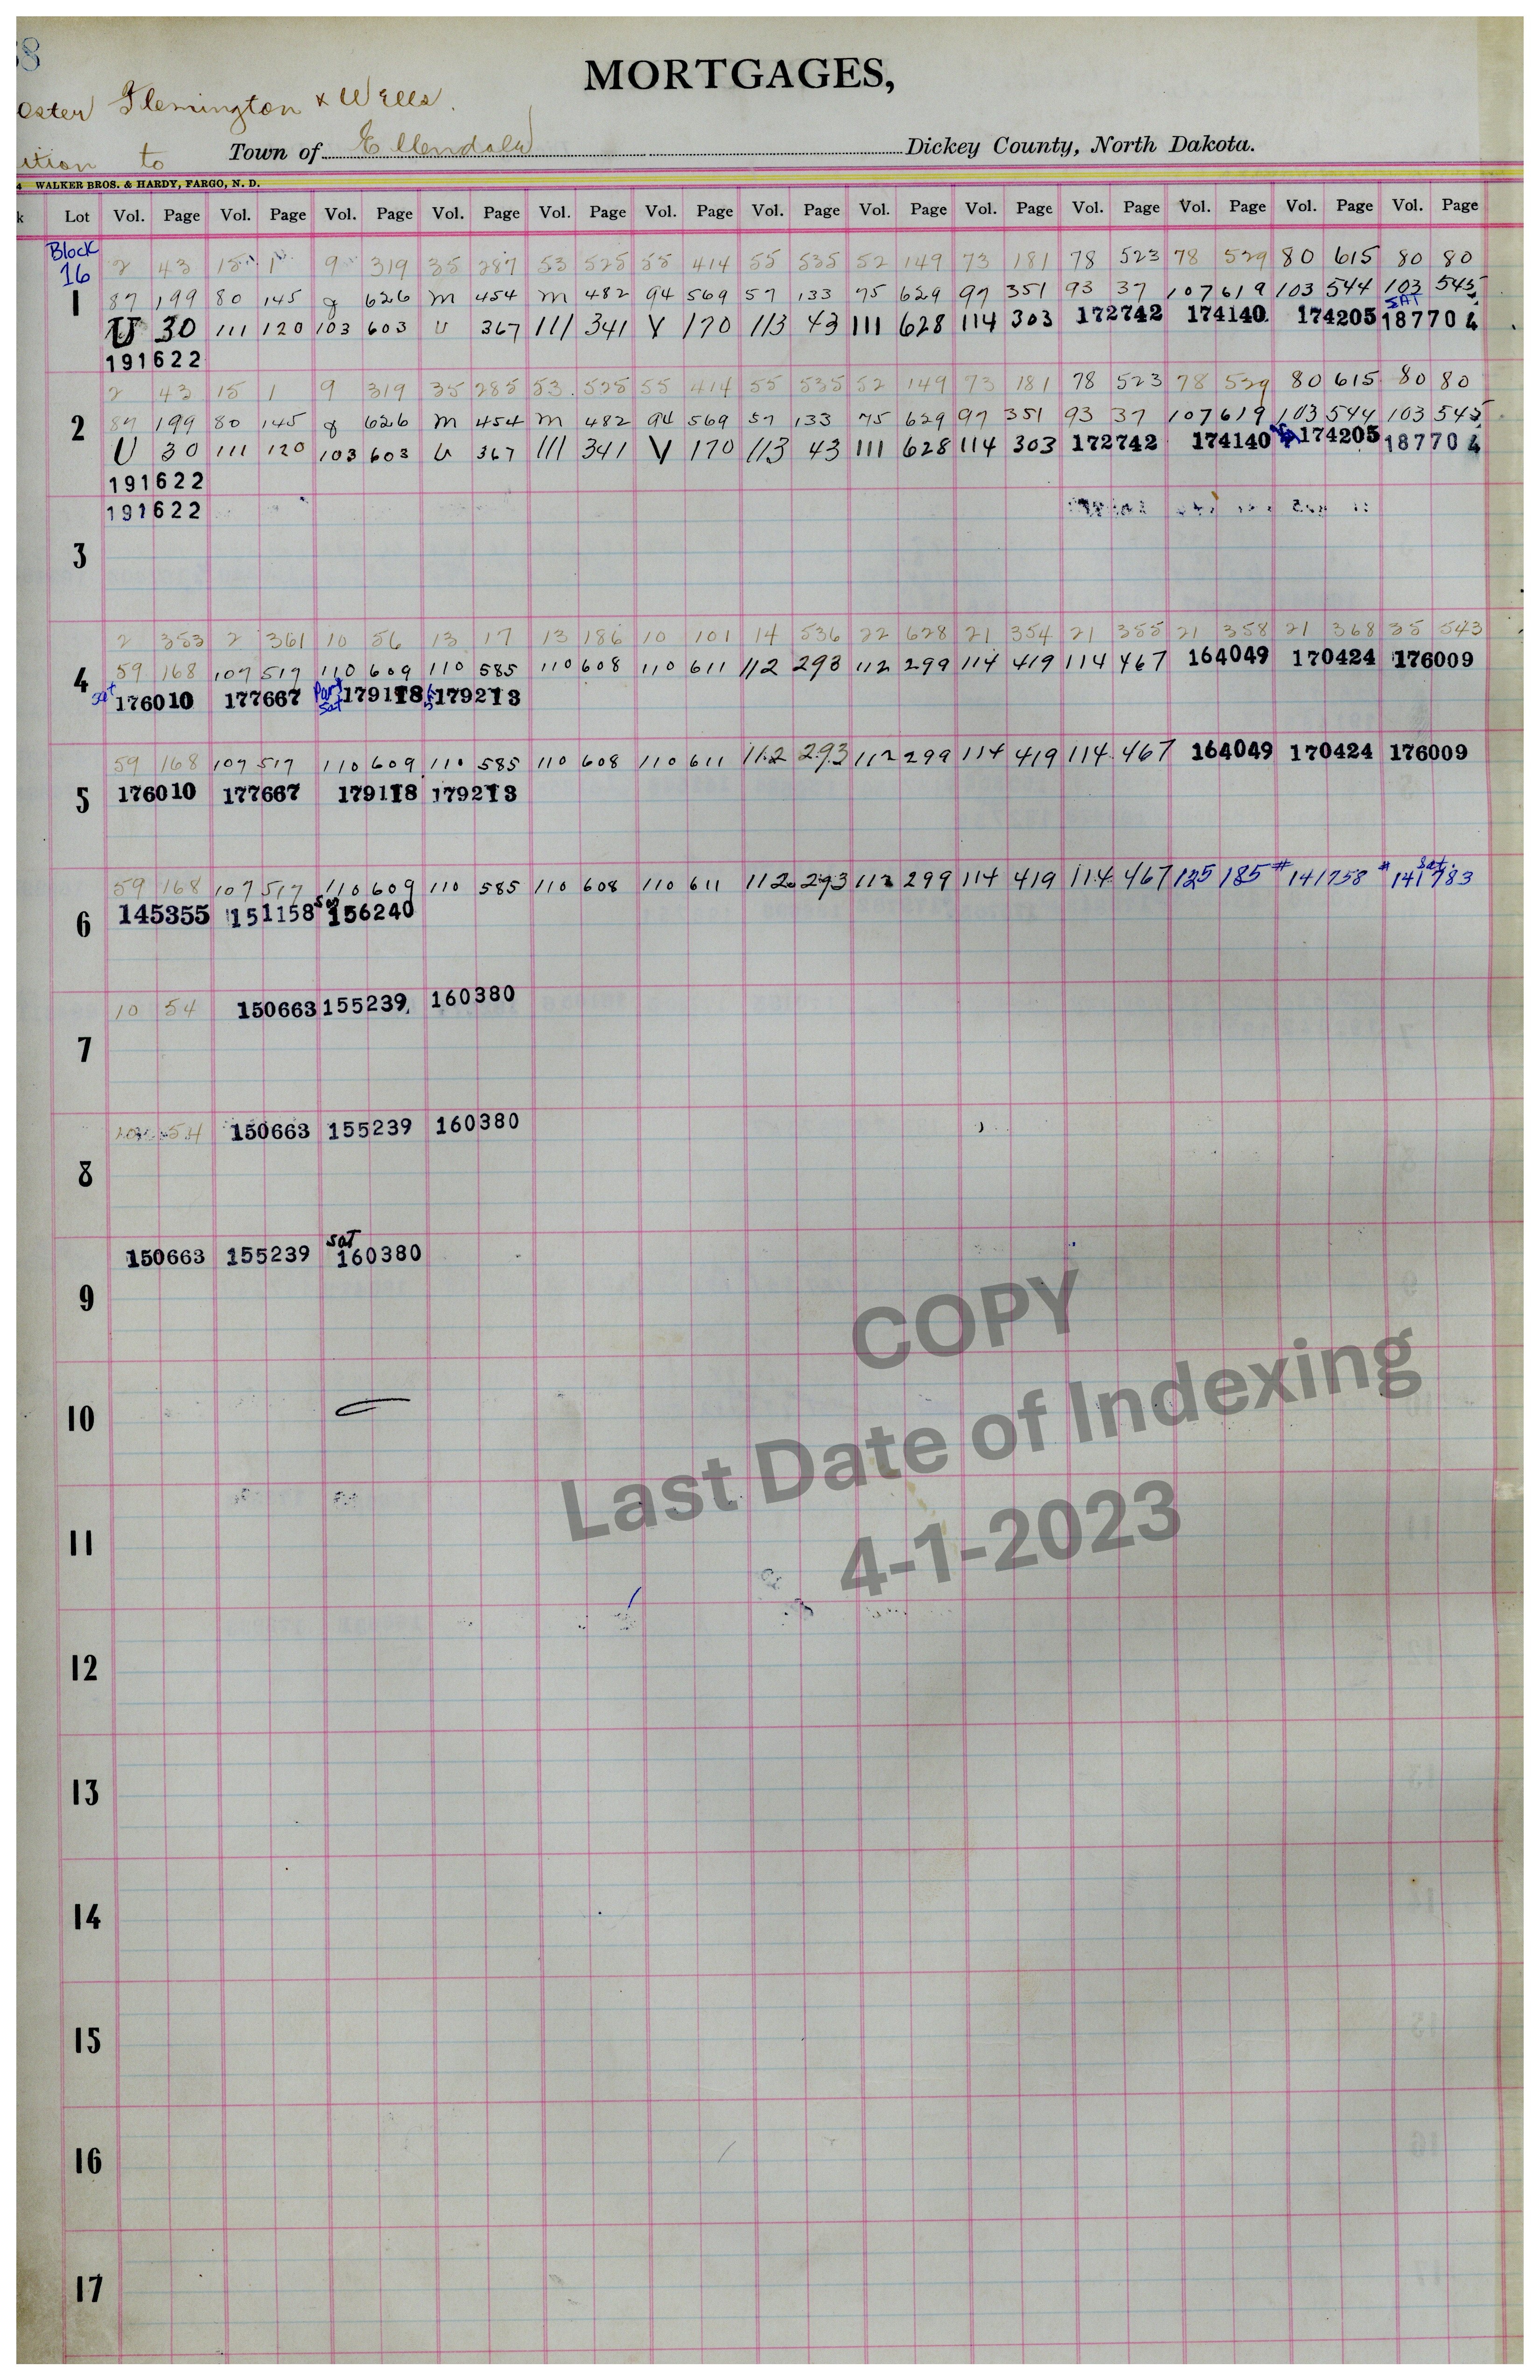 38
MORTGAGES,
Flemington & Wells.
to Town of Ellendale Dickey County, North Dakota.
WALKER BROS. & HARDY, FARGO, N. D.
Lot Vol. Page Vol. Page Vol. Page Vol. Page Vol. Page Vol. Page Vol. Page Vol. Page Vol. Page Vol. Page Vol. Page Vol. Page Vol. Page
Block
16
2 43 15 1 9 319 35 287 53 525 55 414 55 535 52 149 73 181 78 523 78 529 80 615 80 80
1
87 199 80 145 g 626 M 454 M 482 94 569 57 133 75 629 97 351 93 37 107 619 103 544 103 545
SAT
U 30 111 120 103 603 U 367 111 341 V 170 113 43 111 628 114 303 172742 174140 174205 187704
191622
2 43 15 1 9 319 35 285 53 525 55 414 55 535 52 149 73 181 78 523 78 529 80 615 80 80
2
87 199 80 145 g 626 M 454 M 482 94 569 57 133 75 629 97 351 93 37 107 619 103 544 103 545
U 30 111 120 103 603 U 367 111 341 V 170 113 43 111 628 114 303 172742 174140 174205 187704
191622
191622
3
2 353 2 361 10 56 13 17 13 186 10 101 14 536 22 628 21 354 21 355 21 358 21 368 35 543
4
59 168 107 517 110 609 110 585 110 608 110 611 112 293 112 299 114 419 114 467 164049 170424 176009
Sat 176010 177667 Part Sat 179118 179213
59 168 107 517 110 609 110 585 110 608 110 611 112 293 112 299 114 419 114 467 164049 170424 176009
5
176010 177667 179118 179213
59 168 107 517 110 609 110 585 110 608 110 611 112 293 112 299 114 419 114 467 125 185 # 141758 # Sat. 141783
6
145355 151158 Sat 156240
10 54 150663 155239 160380
7
54 150663 155239 160380
8
150663 155239 SAT 160380
9
10
11
12
13
14
15
16
17
COPY
Last Date of Indexing
4-1-2023